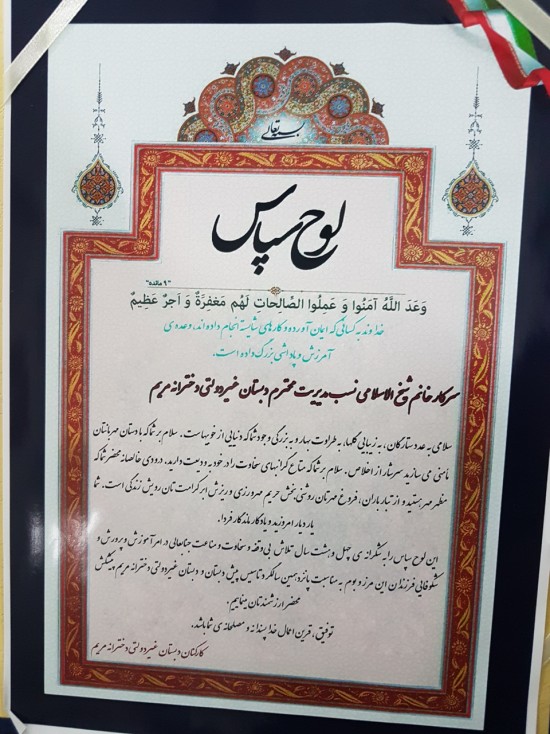 بسمه تعالی
لوح سپاس
"۹ مائده"
وَعَدَ اللَّهُ آمَنُوا وَ عَمِلُوا الصَّالِحاتِ لَهُم مَغفِرَةٌ وَ اَجرٌ عَظِیمٌ
خداوند به کسانی که ایمان آورده و کارهای شایسته انجام داده اند، وعده ی
آمرزش و پاداشی بزرگ داده است.
سرکار خانم شیخ الاسلامی نسب مدیریت محترم دبستان غیردولتی دخترانه مریم
سلامی به عدد ستارگان، به زیبایی گلها، به طراوت بهار و به بزرگی وجود شما که دنیایی از خوبهاست. سلام بر شما که با دستان مهربانتان
بامنی می سازید سرشار از اخلاص. سلام بر شما که متاع گرانبهای سخاوت را در خود به ودعت دارید. درودی خالصانه محضر شما که
مظهر مهر هستید و از تبار باران، فروغ مهرتان روشنی بخش حریم مهرورزی و ریزش ابر کرامت تان رویش زندگی است. شما
یار دیار امروزید و یادگار ماندگار فردا.
این لوح سپاس را به شکرانه ی چهل و هشت سال تلاش بی وقفه و سخاوت و مناعت جنابعالی در امر آموزش و پرورش و
شکوفایی فرزندان این مرز و بوم به مناسبت پانزدهمین سالگرد تاسیس پیش دبستان و دبستان غیردولتی دخترانه مریم پیشکش
محضر ارزشمندتان مینماییم.
توفیق، قرین اعمال خداپسندانه و مصلحانه ی شما باشد.
کارکنان دبستان غیردولتی دخترانه مریم